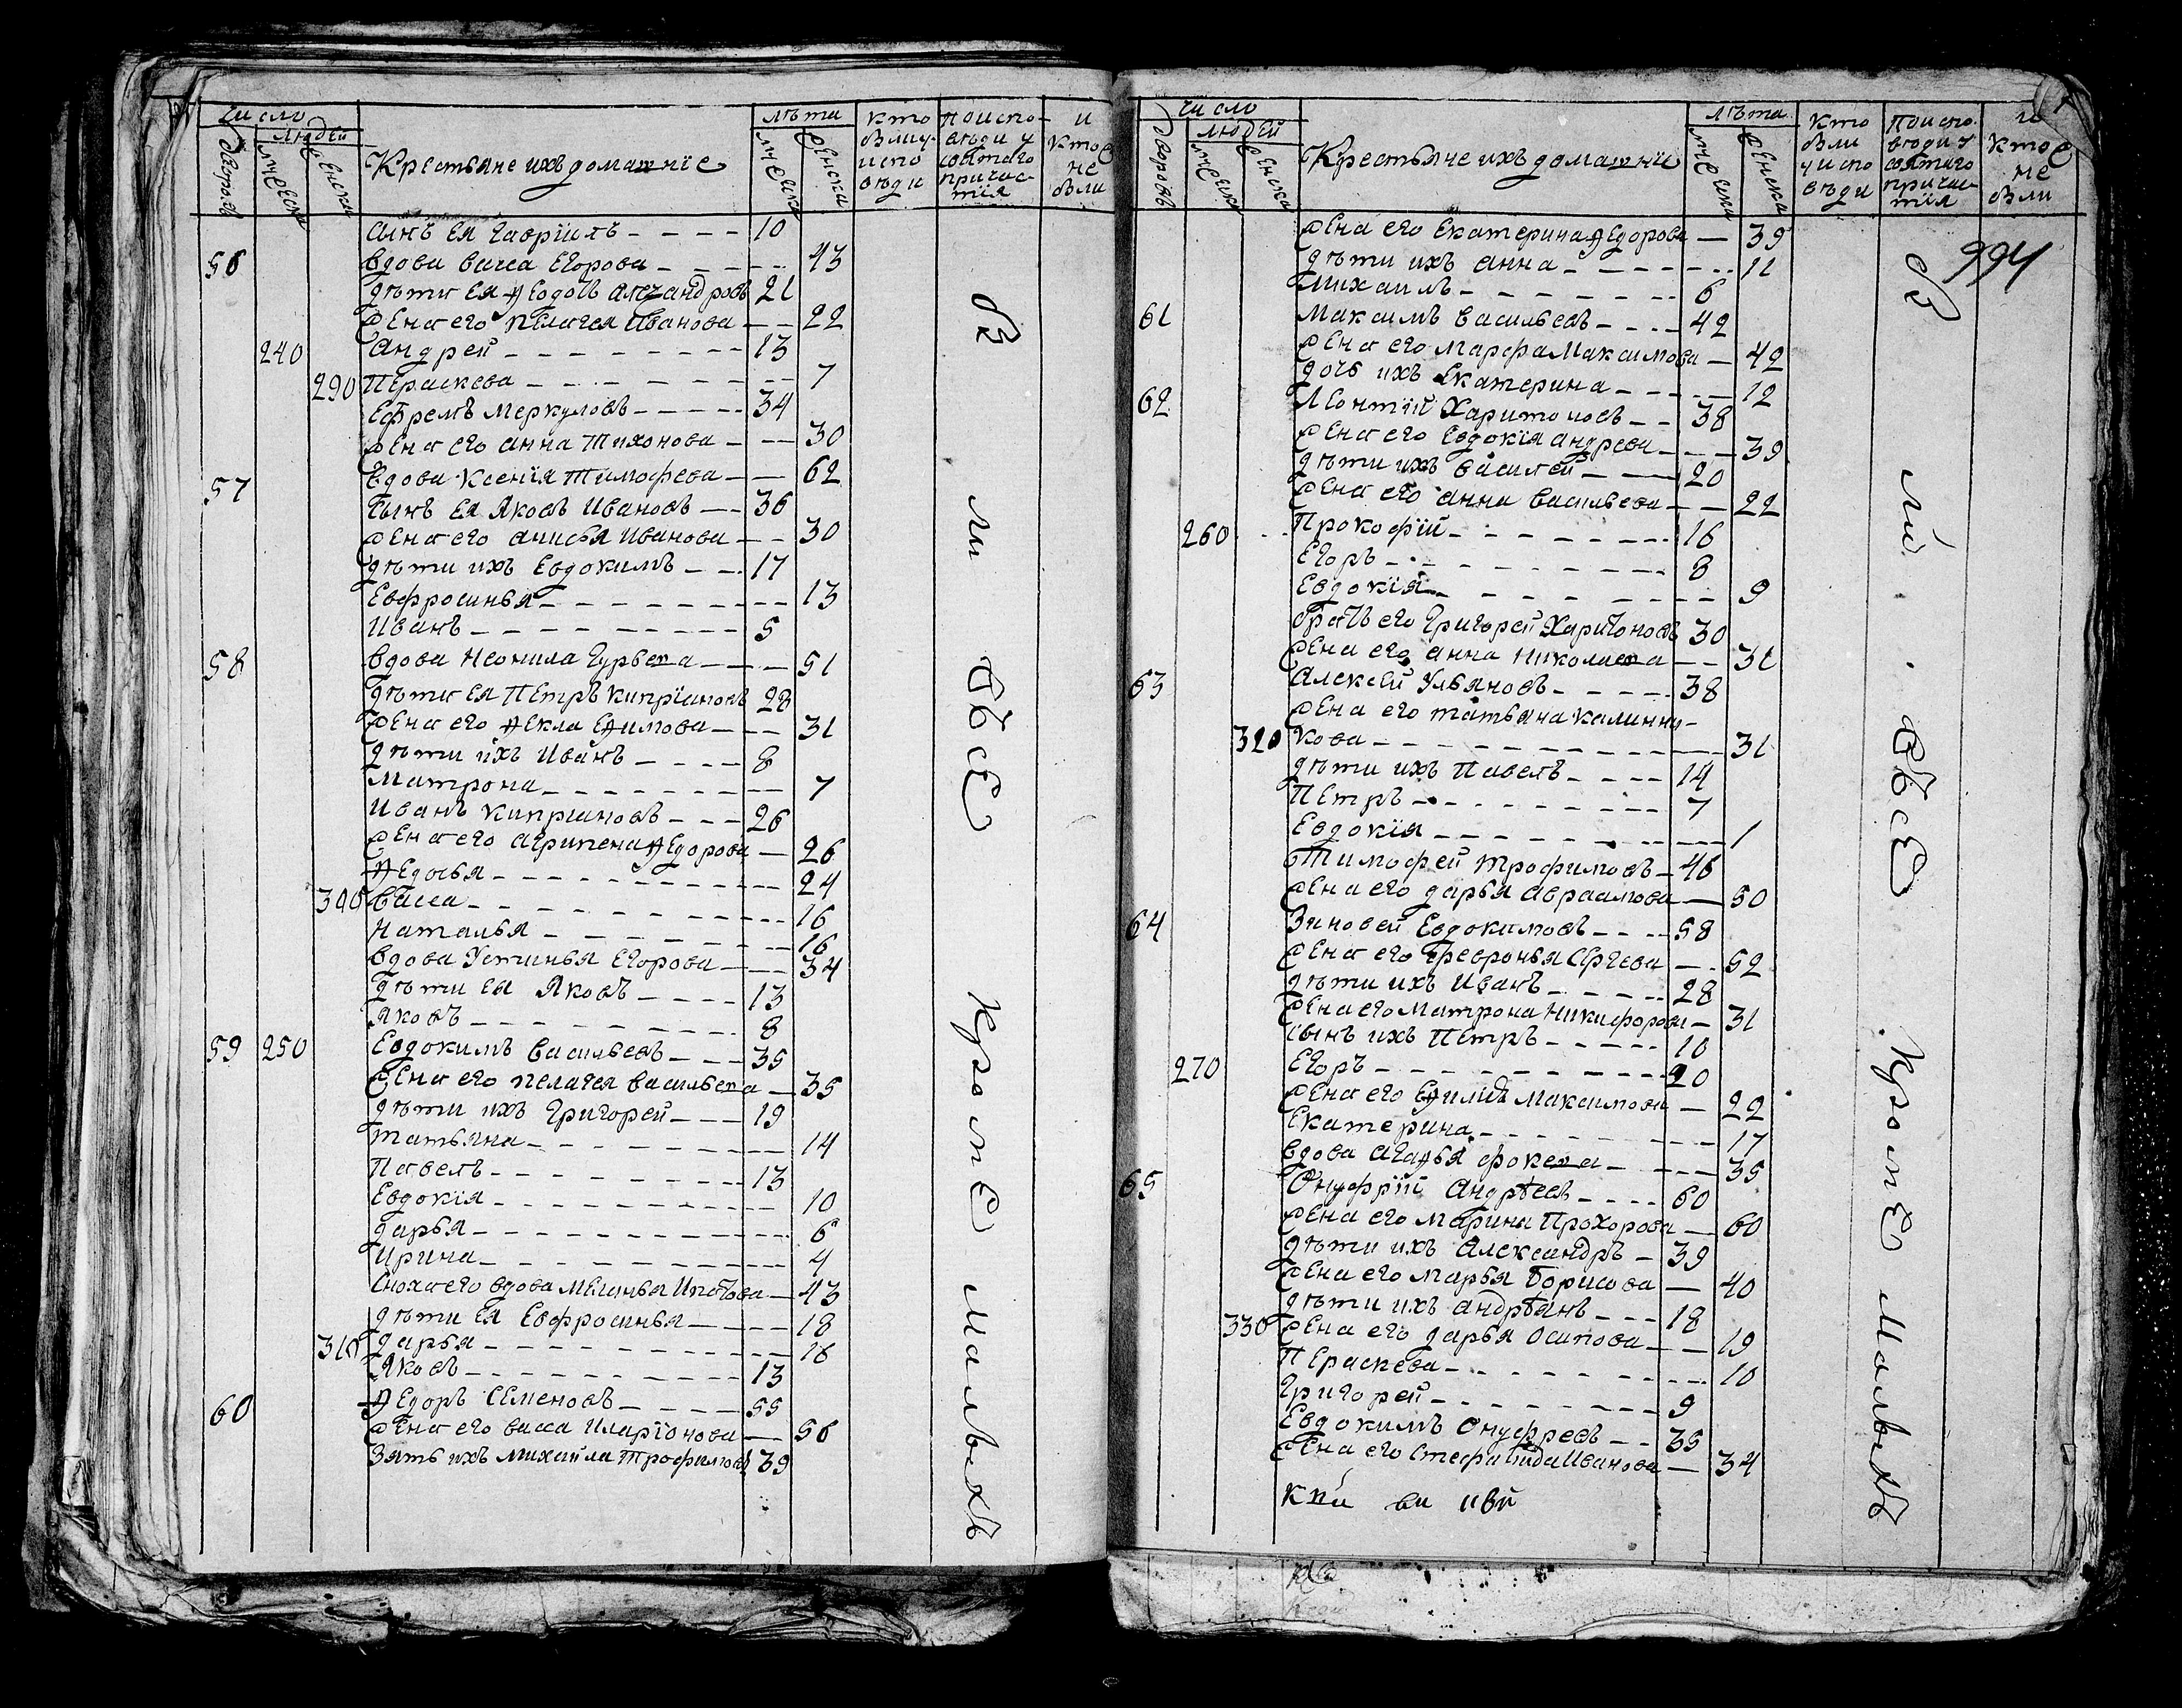 число
людей
дворовъ
мужеска
женска
Крестьяне ихъ домашніе
лѣта
мужеска
женска
кто
были у
испо
вѣди
поиспо-
вѣди у
святаго
причас-
тія
и
ктоже
не
были
сынъ ея Гавріилъ - - - - 10
56 вдова Васса Егорова - - - - 43
дѣти ея Ѳедотъ Алеѯандровъ 21
жена его Пелагея Иванова - - 22
240 Андрей - - - - 13
290 Пераскева - - - - 7
Ефремъ Меркуловъ - - - - 34
жена его Анна Тихонова - - - 30
57 Вдова Ксенія Тимофева - - 62
Сынъ ея Яковъ Ивановъ - - 36
жена его Анисья Иванова - - 30
дѣти ихъ Евдокимъ - - - 17
Евфросинья - - - - 13
Иванъ - - - - 5
58 вдова Неонила Гурьева - - - 51
дѣти ея Петръ Кипріановъ 28
жена его Ѳекла Еѳимова - - - 31
дѣти ихъ Иванъ - - - - 8
Матрона - - - - 7
Иванъ Кипріановъ - - - 26
жена его Агрипена Ѳедорова - 26
Ѳедосья - - - - 24
300 Васса - - - - 16
Наталья - - - - 16
вдова Устинья Егорова - - - 34
дѣти ея Яковъ - - - - 13
Яковъ - - - - 8
59 250 Евдокимъ Васильевъ - - - 35
жена его Пелагея Васильева - 35
дѣти ихъ Григорей - - - 19
Татьяна - - - - 14
Павелъ - - - - 13
Евдокія - - - - 10
Дарья - - - - 6
Ирина - - - - 4
Сноха его вдова Меланья Ипатова - 43
дѣти ея Евфросинья - - - - 18
310 Дарья - - - - 16
Яковъ - - - - 13
60 Ѳедоръ Семеновъ - - - - 55
жена его Васса Иларіонова - - 56
Зять ихъ Михайла Трофимовъ 39
бы
ли
Всѣ
Кромѣ
малыхъ
число
людей
дворовъ
мужеска
женска
Крестьяне ихъ домашніе
лѣта
мужеска
женска
кто
были
у испо
вѣди
поиспо-
вѣди у
святаго
причас-
тія
и
ктоже
не
были
994
жена его Екатерина Ѳедорова - 39
дѣти ихъ Анна - - - - 11
Михаилъ - - - - 6
61 Максимъ Васильевъ - - - - 42
жена его Марфа Максимова - 42
дочь ихъ Екатерина - - - - 12
62 Леонтій Харитоновъ - - 38
жена его Евдокія Андрева - - - 39
дѣти ихъ Василей - - - 20
жена его Анна Васильева - - 22
260 Прокофій - - - - 16
Егоръ - - - - 8
Евдокія - - - - 9
братъ его Григорей Харитоновъ 30
жена его Анна Николаева - - 31
63 Алексей Ульяновъ - - - - 38
жена его Татьяна Калинни-
320 кова - - - - 31
дѣти ихъ Павелъ - - - - 14
Петръ - - - - 7
Евдокія - - - - 1
Тимофей Трофимовъ - 46
жена его Дарья Авраамова - 50
64 Зиновей Евдокимовъ - - - - 58
жена его Февронья Сргева - - 52
дѣти ихъ Иванъ - - - - 28
жена его Матрона Никифорова - 31
сынъ ихъ Петръ - - - - 10
270 Егоръ - - - - 20
жена его Еѳимья Максимова - 22
Екатерина - - - - 17
вдова Агаѳья Фокева - - - - 35
65 Онуфрій Андреевъ - - - - 60
жена его Марина Прохорова - 60
дѣти ихъ Александръ - 39
жена его Марья Борисова - 40
дѣти ихъ Андрѣянъ - - - 18
330 жена его Дарья Осипова - - 19
Пераскева - - - - 10
Григорей - - - - 9
Евдокимъ Онуфревъ - - 35
жена его Стефанида Иванова - 34
бы
ли
Всѣ
Кромѣ
Малыхъ